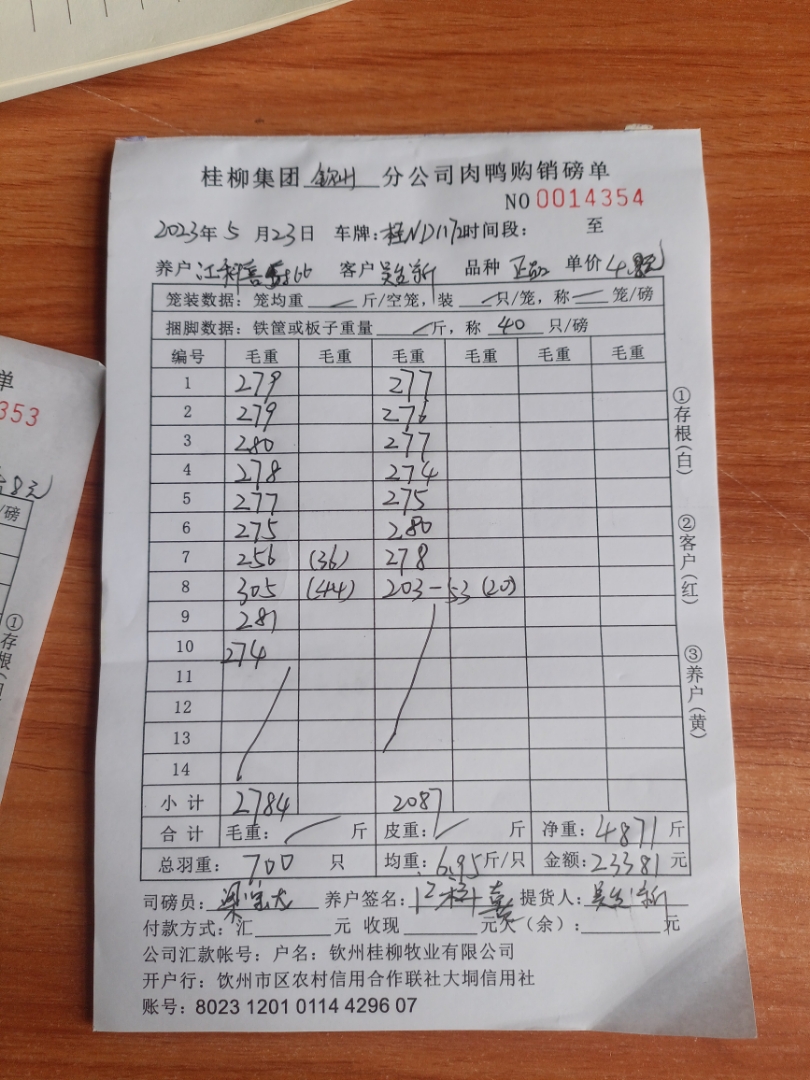 桂柳集团 钦州 分公司肉鸭购销磅单
NO 0014354
2023年 5 月 23日 车牌:桂ND1172时间段: 至
养户 江科喜 66 客户 吴生新 品种 正品 单价 4.8元
笼装数据: 笼均重 斤/空笼, 装 只/笼, 称 笼/磅
捆脚数据: 铁筐或板子重量 斤, 称 40 只/磅
编号 毛重 毛重 毛重 毛重 毛重 毛重
1 279 277
2 279 276
3 280 277
4 278 274
5 277 275
6 275 280
7 256 (36) 278
8 305 (44) 203-53 (20)
9 281
10 274
11
12
13
14
小 计 2784 2087
合 计 毛重: 斤 皮重: 斤 净重: 4871 斤
总羽重: 700 只 均重: 6.95 斤/只 金额: 23381 元
司磅员: 养户签名: 江科喜 提货人: 吴生新
付款方式: 汇 元 收现 元欠(余): 元
公司汇款帐号: 户名: 钦州桂柳牧业有限公司
开户行: 饮州市区农村信用合作联社大垌信用社
账号: 8023 1201 0114 4296 07
①存根(白)
②客户(红)
③养户(黄)
单
353
8元
/磅
①存根(白